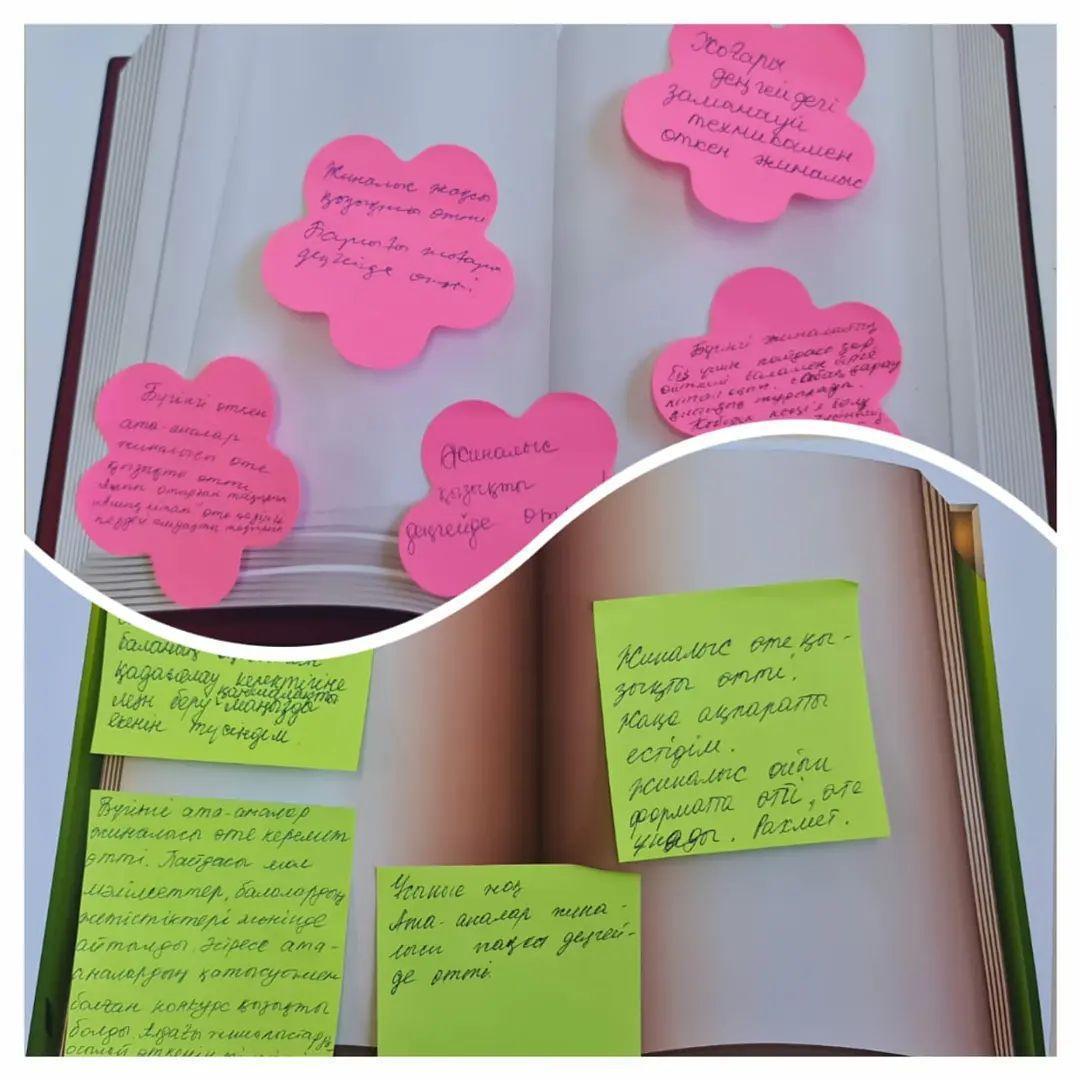 Жоғары
деңгейдегі
заманауи
техникамен
өткен жиналыс
Жиналыс жақсы
қызықты өтті
Барлығы жоғары
деңгейде өтті.
Бүгінгі жиналыстың
біз үшін пайдасы зор
өйткені баламен бірге
кітап оқып, сабақ қарау
Бүгінгі өткен
ата-аналар
жиналысы өте
қызықты өтті
Жиналыс
қызықты
деңгейде
баланың
қадағалау керектігіне
мән беру қаншалықты
маңызды
екенін түсіндім.
Жиналыс өте қы-
зықты өтті.
Жаңа ақпаратты
естідім.
Жиналыс ойын
формата өтті, өте
ұнады. Рахмет.
Бүгінгі ата-аналар
жиналысы өте керемет
өтті. Пайдасы мол
мәліметтер, балалардың
жетістіктері жөнінде
айтылды. Әсіресе ата-
аналардың қатысуымен
болған конкурс қызықты
болды. Алдағы жиналыстарда
Ұсыныс жоқ
Ата-аналар жина-
лысы жақсы деңгей-
де өтті.